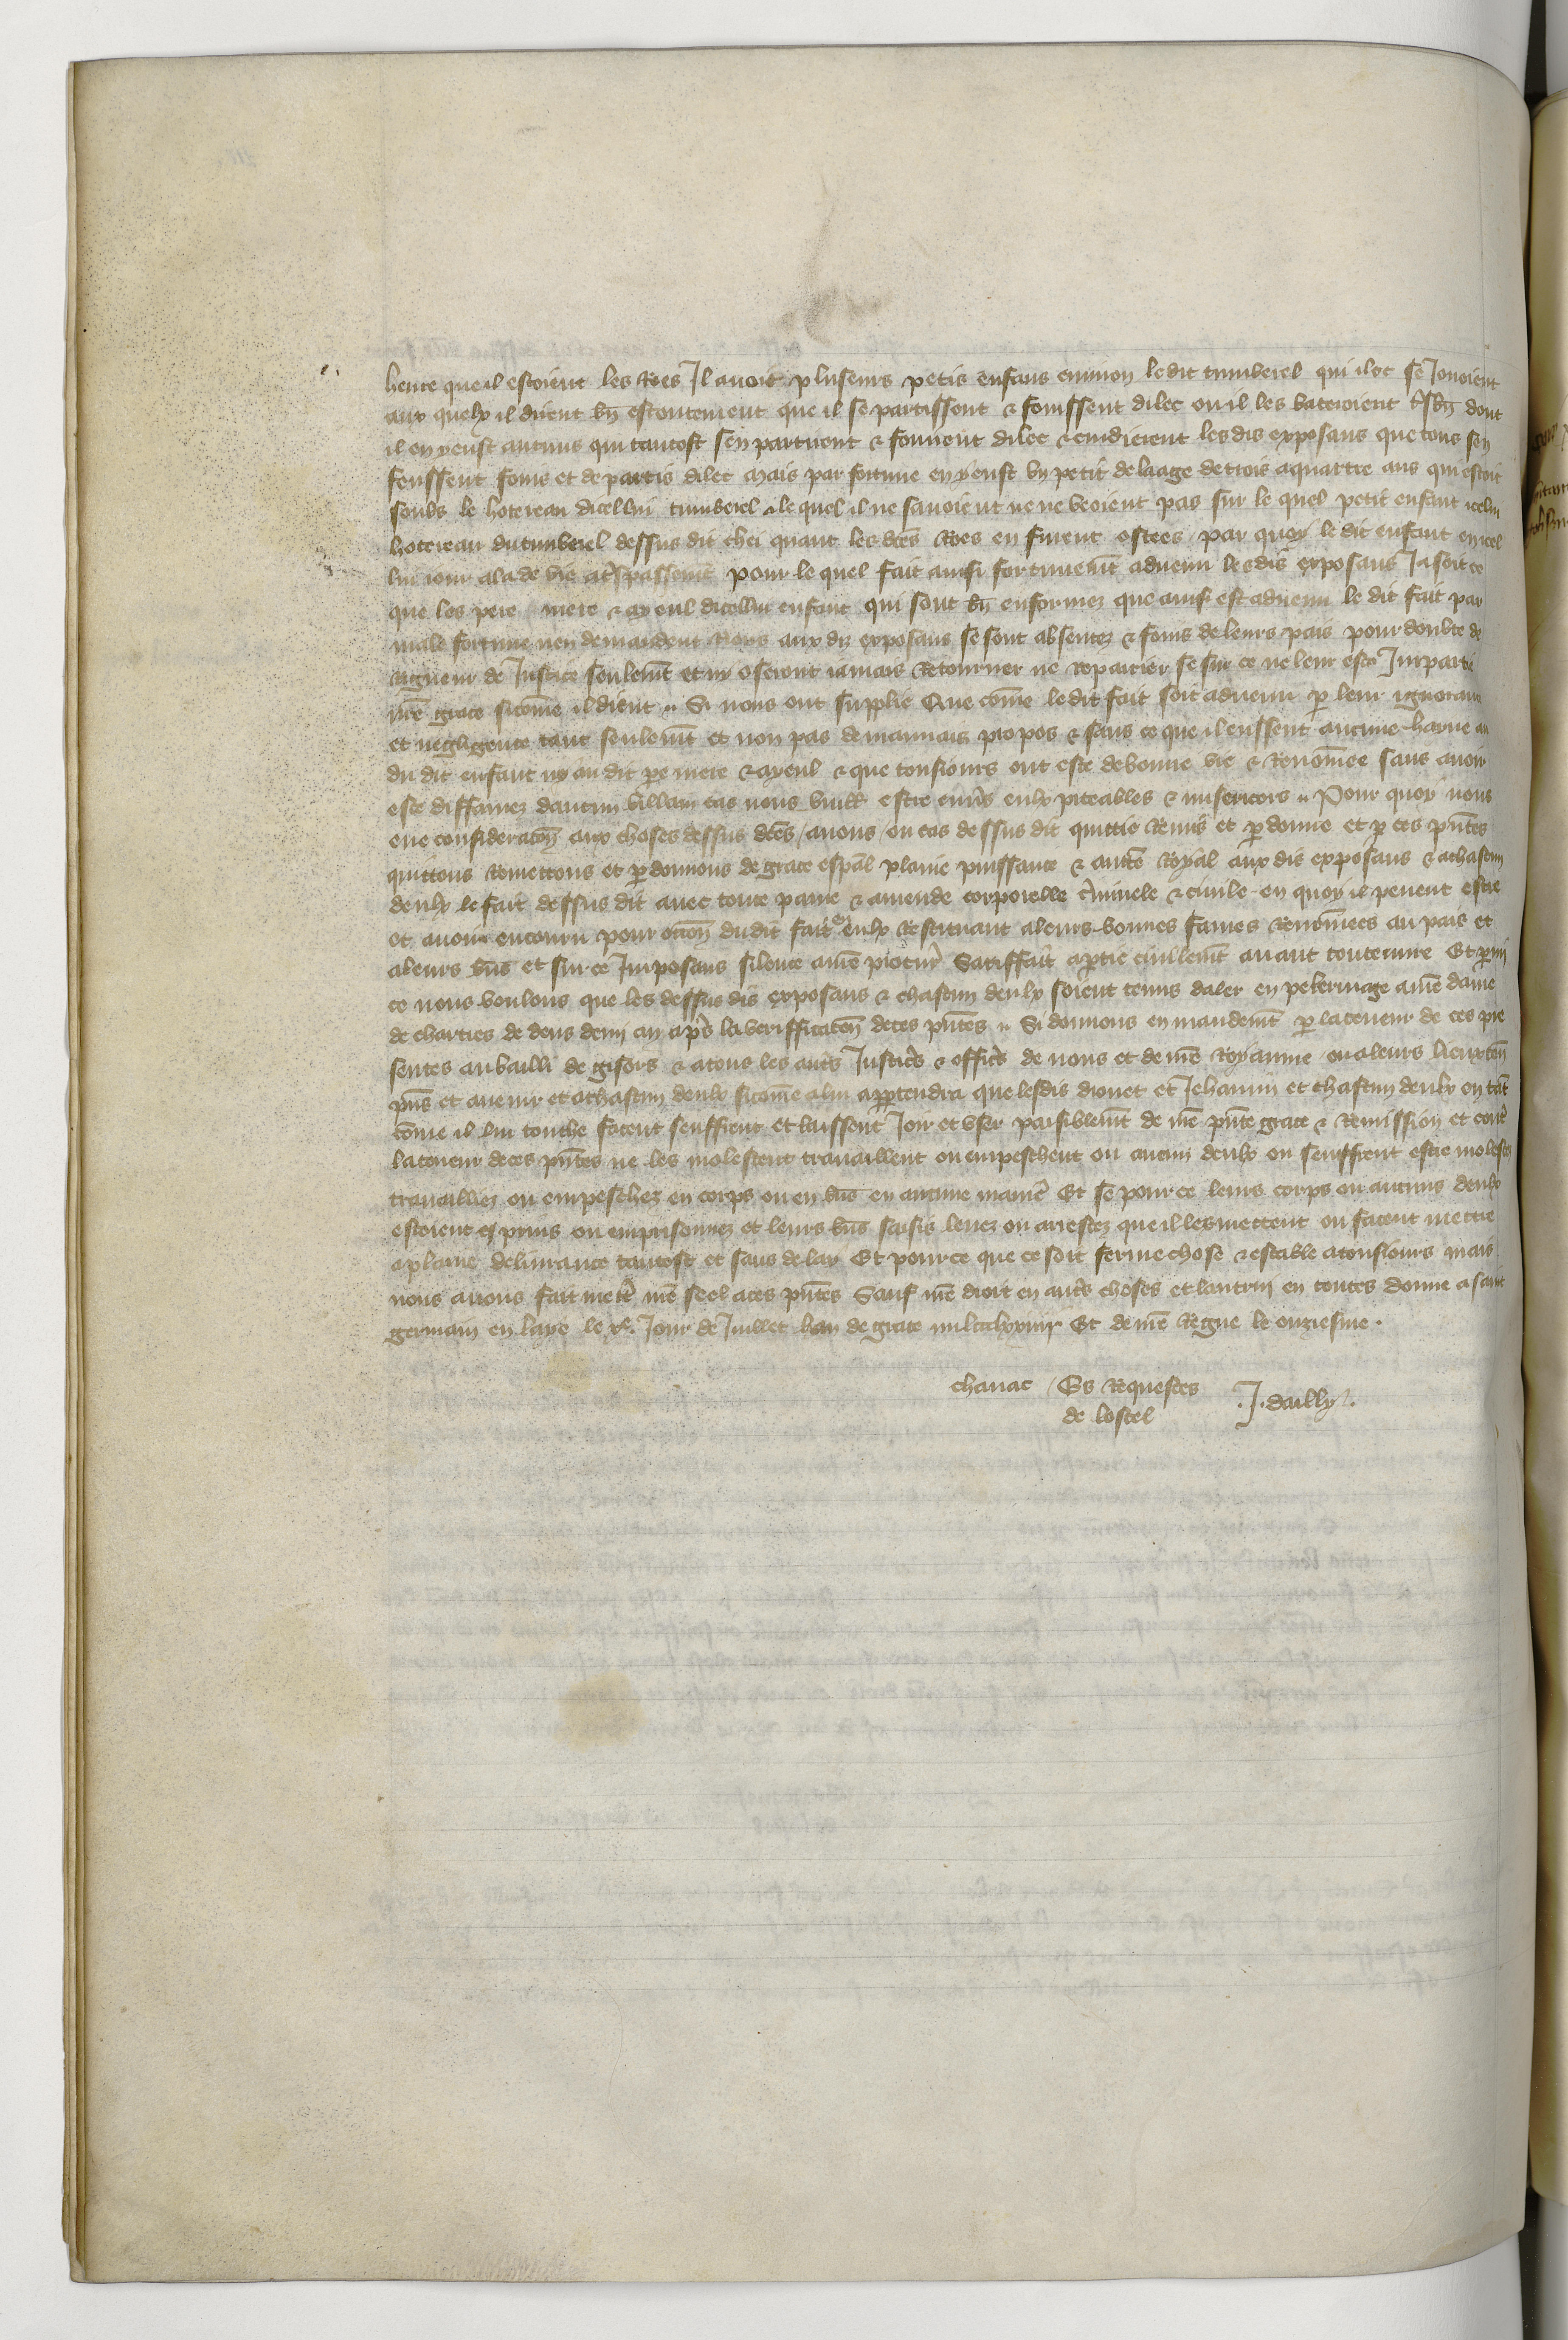 heure que il estoient les Roes Il avoit pluseurs petis enfans environ le dit tumberel qui iloc se Jouoient
aux quelx il dirent bn̄ estoutement que il se partissent & fouissent dilec ou il les bateroient tͬsbn̄ dont
il en y eust aucuns qui tantost sen partirent & fouirent dilec & cuidierent les dis exposans que tous sen
feussent fouis et departis dilec Mais par fortune en y eust un petit de laage de trois a quattre ans qui estoit
soubz le hotereau dicellui tumberel & le quel il ne savoient ne ne veoient pas Sur le quel petit enfant icelui
hotereau du tumberel dessus dit chei quant les dc̄es Roes en furent ostees par quoy le dit enfant en icel
lui iour ala de vie a tͬspassemt̄ pour le quel fait ainsi fortunemt̄ advenu les dis exposans Ja soit ce
que les pere mere & ayeul dicellui enfant qui sont bn̄ enformez que ainsi est advenu le dit fait par
male fortune nen demandent Riens aux diz exposans se sont absentez & fouis de leurs pais pour doubte de
rigueur de Justice seulemt̄ et ny oseront iamais Retourner ne Repairier se sur ce ne leur est Imparti
nr̄e grace sicom̄e il dient Si nous ont supplie Que com̄e le dit fait soit advenu p̱ leur ignorance
et negligence tant seulemt̄ et non pas de mauvais propos & sans ce que il eussent aucune hayne au
du dit enfant ny au dit pere mere & ayeul & que tousiours ont este de bonne vie & Renom̄ee sans avoir
este diffamez daucun villain cas nous vueill̄ estre envͬs eulx piteables & misericors Pour quoy nous
eue consideracōn aux choses dessus dc̄es avons ou cas dessus dit quittie Remis et p̱donne et p̱ ces pn̄tes
quittons Remettons et p̱donnons de grace esp̄al plaine puissance & auct̄e Royal aux dis exposans & a chascun
deulx le fait dessus dit avec toute paine & amende corporelle cͬminele & civile en quoy il peuent estre
et avoir encouru pour occōn du dit fait & eulx Restituant a leurs bonnes fames Renom̄ees au pais et
a leurs bn̄s et sur ce Imposans silence a nr̄e procurͬ Satiffait̄ a p̱tie civillemt̄ avant toute euvre Et p̱mi
ce nous voulons que les dessus dis exposans & chascun deulx soient tenus daler en pelerinage a nr̄e dame
de chartres de dens demi an apͬs la verifficacōn de ces pn̄tes Si donnons en mandemt̄ p̱ la teneur de ces pre
sentes au bailli de gisors & a tous les autͬs Justicͬs & officͬs de nous et de nr̄e Royaume ou a leurs lieuxten̄
pn̄s et avenir et a chascun deulx sicom̄e a lui app̱tendra que les dis drouet et Jehannin et chascun deulx en tāt
com̄e il lui touche facent seuffrent et laissent Joir et user paisiblemt̄ de nr̄e pn̄te grace & Remission et contͬ
la teneur de ces pn̄tes ne les molestent travaillent ou empeschent ou aucun deulx ou seuffrent estre molestez
travaillez ou empeschez en corps ou en bn̄s en aucune manieͬ Et se pour ce leurs corps ou aucuns deulx
estoient prins ou emprisonnez et leurs bn̄s saisis levez ou arrestez que il les mettent ou facent mettre
a plaine delivrance tantost et sans delay Et pour ce que ce soit ferme chose & estable a tousiours mais
nous avons fait mettͬ nr̄e seel a ces pn̄tes Sauf nr̄e droit en autͬs choses et lautrui en toutes donne a saint
germain en laye le xᵉ. Jour de Juillet lan de grace mil ccclxxiiij Et de nr̄e Regne le onziesme .
chanac / Es Requestes
de lostel
.J. dailly.